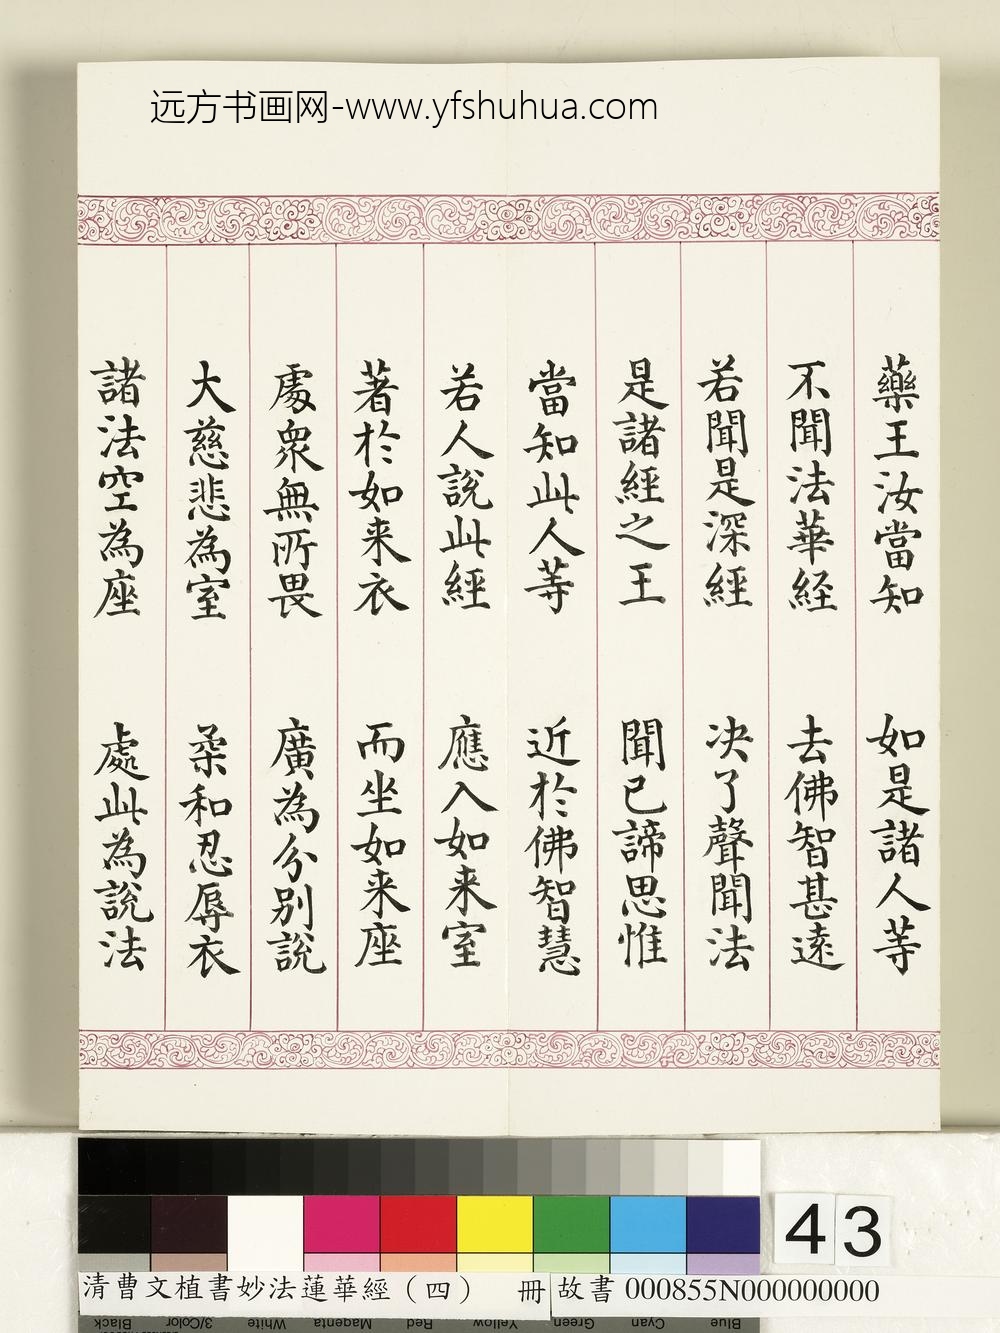 远方书画网-www.yfshuhua.com
藥王汝當知　如是諸人等
不聞法華経　去佛智甚遠
若聞是深經　决了聲聞法
是諸經之王　聞已諦思惟
當知此人等　近於佛智慧
若人說此經　應入如来室
著於如来衣　而坐如来座
處衆無所畏　廣為分別說
大慈悲為室　柔和忍辱衣
諸法空為座　處此為說法
43
清曹文植書妙法蓮華經（四）　冊
故書 000855N000000000
Black
3/Color
White
Magenta
Red
Yellow
Green
Cyan
Blue